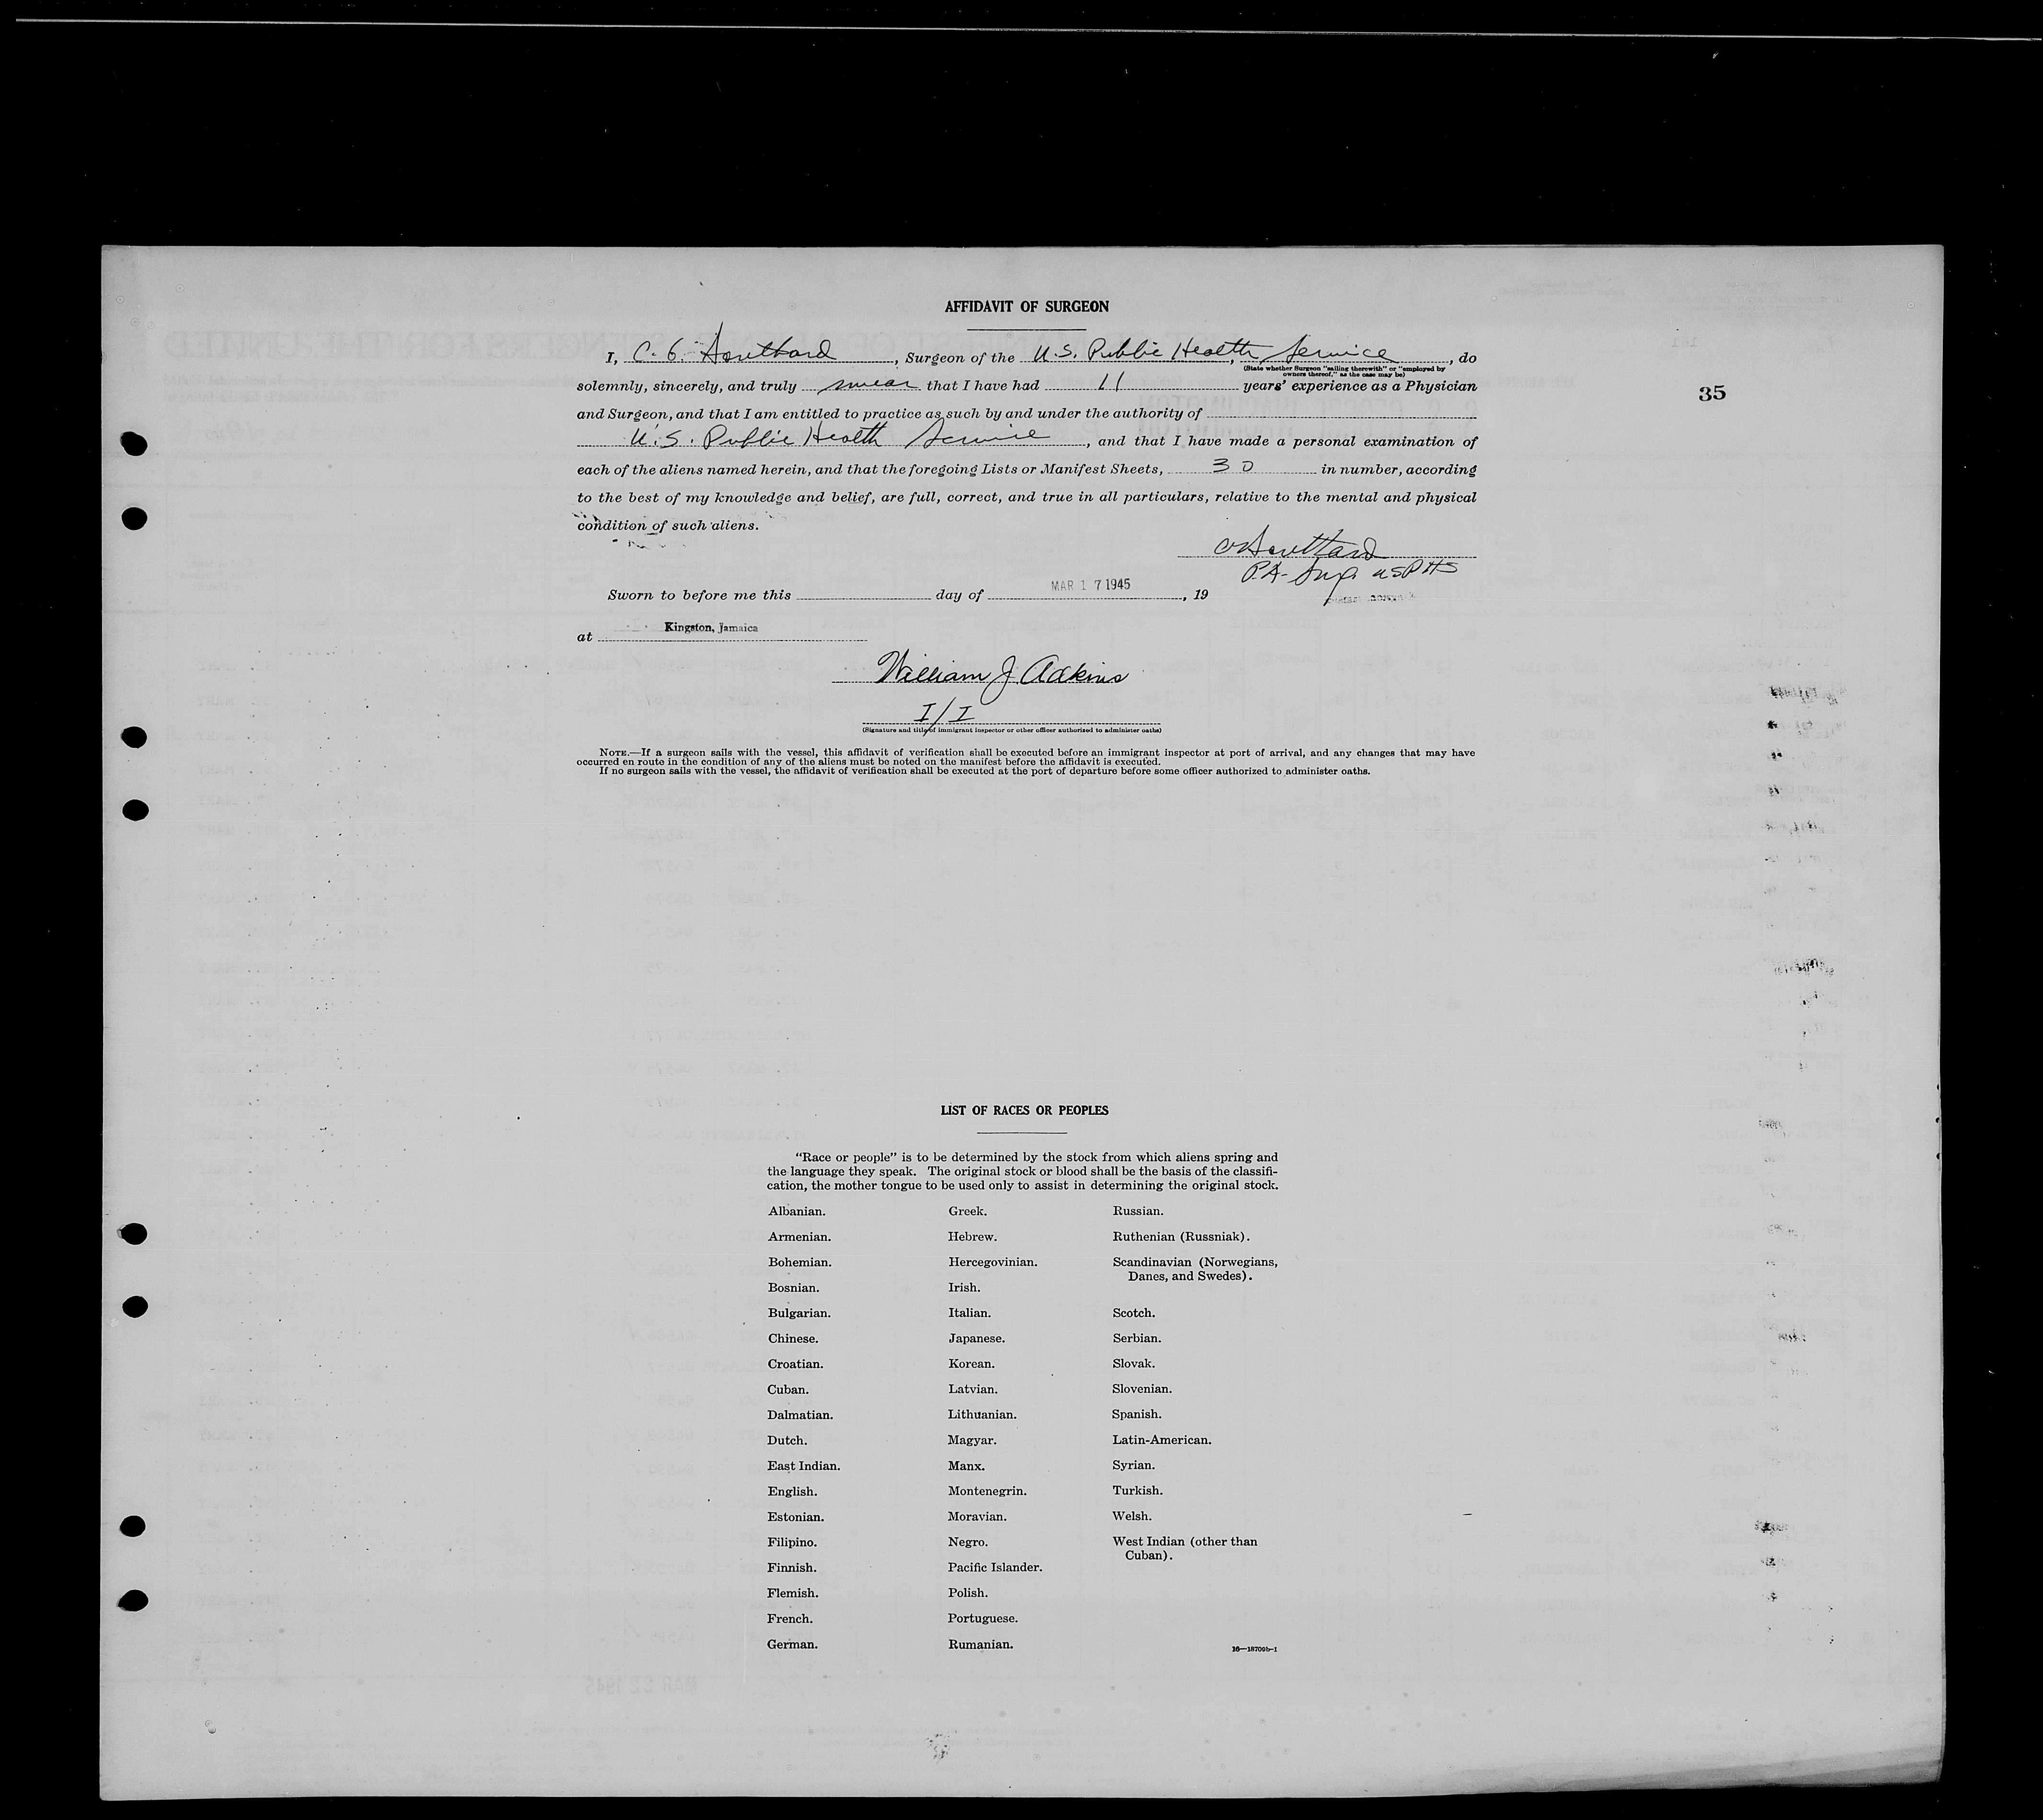 AFFIDAVIT OF SURGEON
I, C. G. Southard, Surgeon of the U.S. Public Health Service, do
(State whether Surgeon "sailing therewith" or "employed by
owners thereof," as the case may be)
solemnly, sincerely, and truly swear that I have had 11 years' experience as a Physician
35
and Surgeon, and that I am entitled to practice as such by and under the authority of
U.S. Public Health Service, and that I have made a personal examination of
each of the aliens named herein, and that the foregoing Lists or Manifest Sheets, 30 in number, according
to the best of my knowledge and belief, are full, correct, and true in all particulars, relative to the mental and physical
condition of such aliens.
Southard
P.A. Surg. USPHS
Sworn to before me this day of MAR 17 1945, 19
at Kingston, Jamaica
William J Adkins
I/I
(Signature and title of immigrant inspector or other officer authorized to administer oaths)
NOTE.—If a surgeon sails with the vessel, this affidavit of verification shall be executed before an immigrant inspector at port of arrival, and any changes that may have
occurred en route in the condition of any of the aliens must be noted on the manifest before the affidavit is executed.
If no surgeon sails with the vessel, the affidavit of verification shall be executed at the port of departure before some officer authorized to administer oaths.
LIST OF RACES OR PEOPLES
"Race or people" is to be determined by the stock from which aliens spring and
the language they speak. The original stock or blood shall be the basis of the classifi-
cation, the mother tongue to be used only to assist in determining the original stock.
Albanian.
Armenian.
Bohemian.
Bosnian.
Bulgarian.
Chinese.
Croatian.
Cuban.
Dalmatian.
Dutch.
East Indian.
English.
Estonian.
Filipino.
Finnish.
Flemish.
French.
German.
Greek.
Hebrew.
Hercegovinian.
Irish.
Italian.
Japanese.
Korean.
Latvian.
Lithuanian.
Magyar.
Manx.
Montenegrin.
Moravian.
Negro.
Pacific Islander.
Polish.
Portuguese.
Rumanian.
Russian.
Ruthenian (Russniak).
Scandinavian (Norwegians,
Danes, and Swedes).
Scotch.
Serbian.
Slovak.
Slovenian.
Spanish.
Latin-American.
Syrian.
Turkish.
Welsh.
West Indian (other than
Cuban).
16—18709b-1